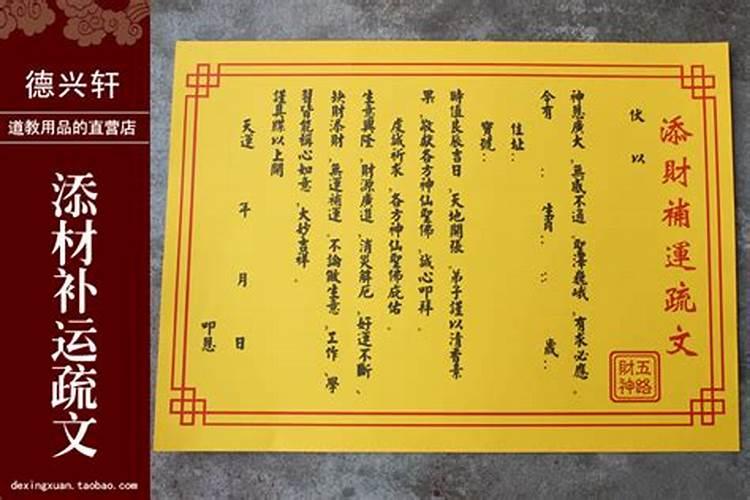 德兴轩
道教用品的直营店
添材补运疏文
dexingxuan.taobao.com
添財補運疏文
五路
財神
伏以
神恩廣大、無感不通、聖澤巍峨、有求必應。
今有 : 生肖: : 歲、
住址:
寶號:
時值良辰吉日、天地開張、弟子謹以清香素
果、敬獻各方神仙聖佛、誠心叩拜。
虔誠祈求、各方神仙聖佛庇佑。
生意興隆、財源廣進、消災解厄、好運不斷、
缺財添財、無運補運、不論做生意、工作、學
習皆能稱心如意、大妙吉祥。
謹具牒以上聞
天運 年 月 日
叩恩